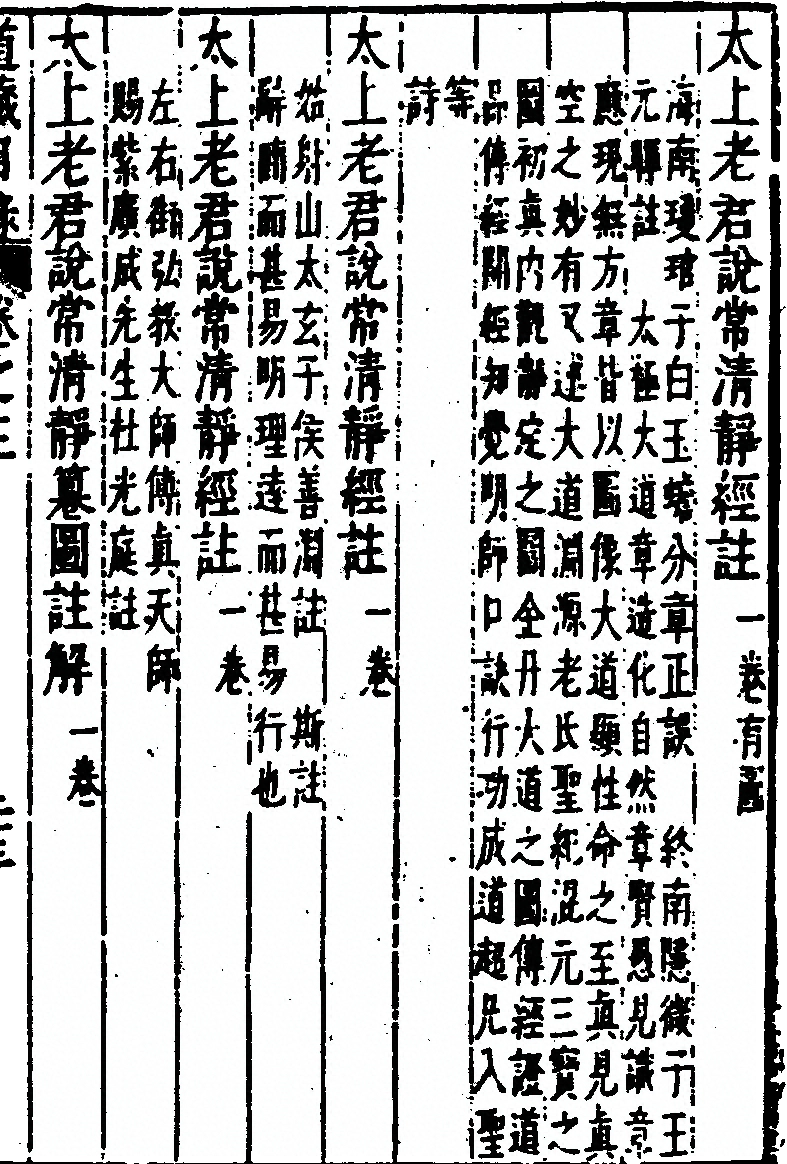 太上老君說常清靜經註 一卷有圖
海南瓊琯子白玉蟾分章正誤 終南隱微子王
元暉註 太極大道章造化自然章賢愚見識章
應現無方章皆以圖像大道顯性命之至真見真
空之妙有又述大道淵源老氏聖紀混元三寶之
圖初真內觀靜定之圖金丹大道之圖傳經證道
品傳經開經知覺明師口訣行功成道超凡入聖
等
詩
太上老君說常清靜經註 一卷
姑射山太玄子侯善淵註 斯註
辭簡而甚易明理遠而甚易行也
太上老君說常清靜經註 一卷
左右街弘教大師傳真天師
賜紫廣成先生杜光庭註
太上老君說常清靜纂圖註解 一卷
道藏目錄 卷之三